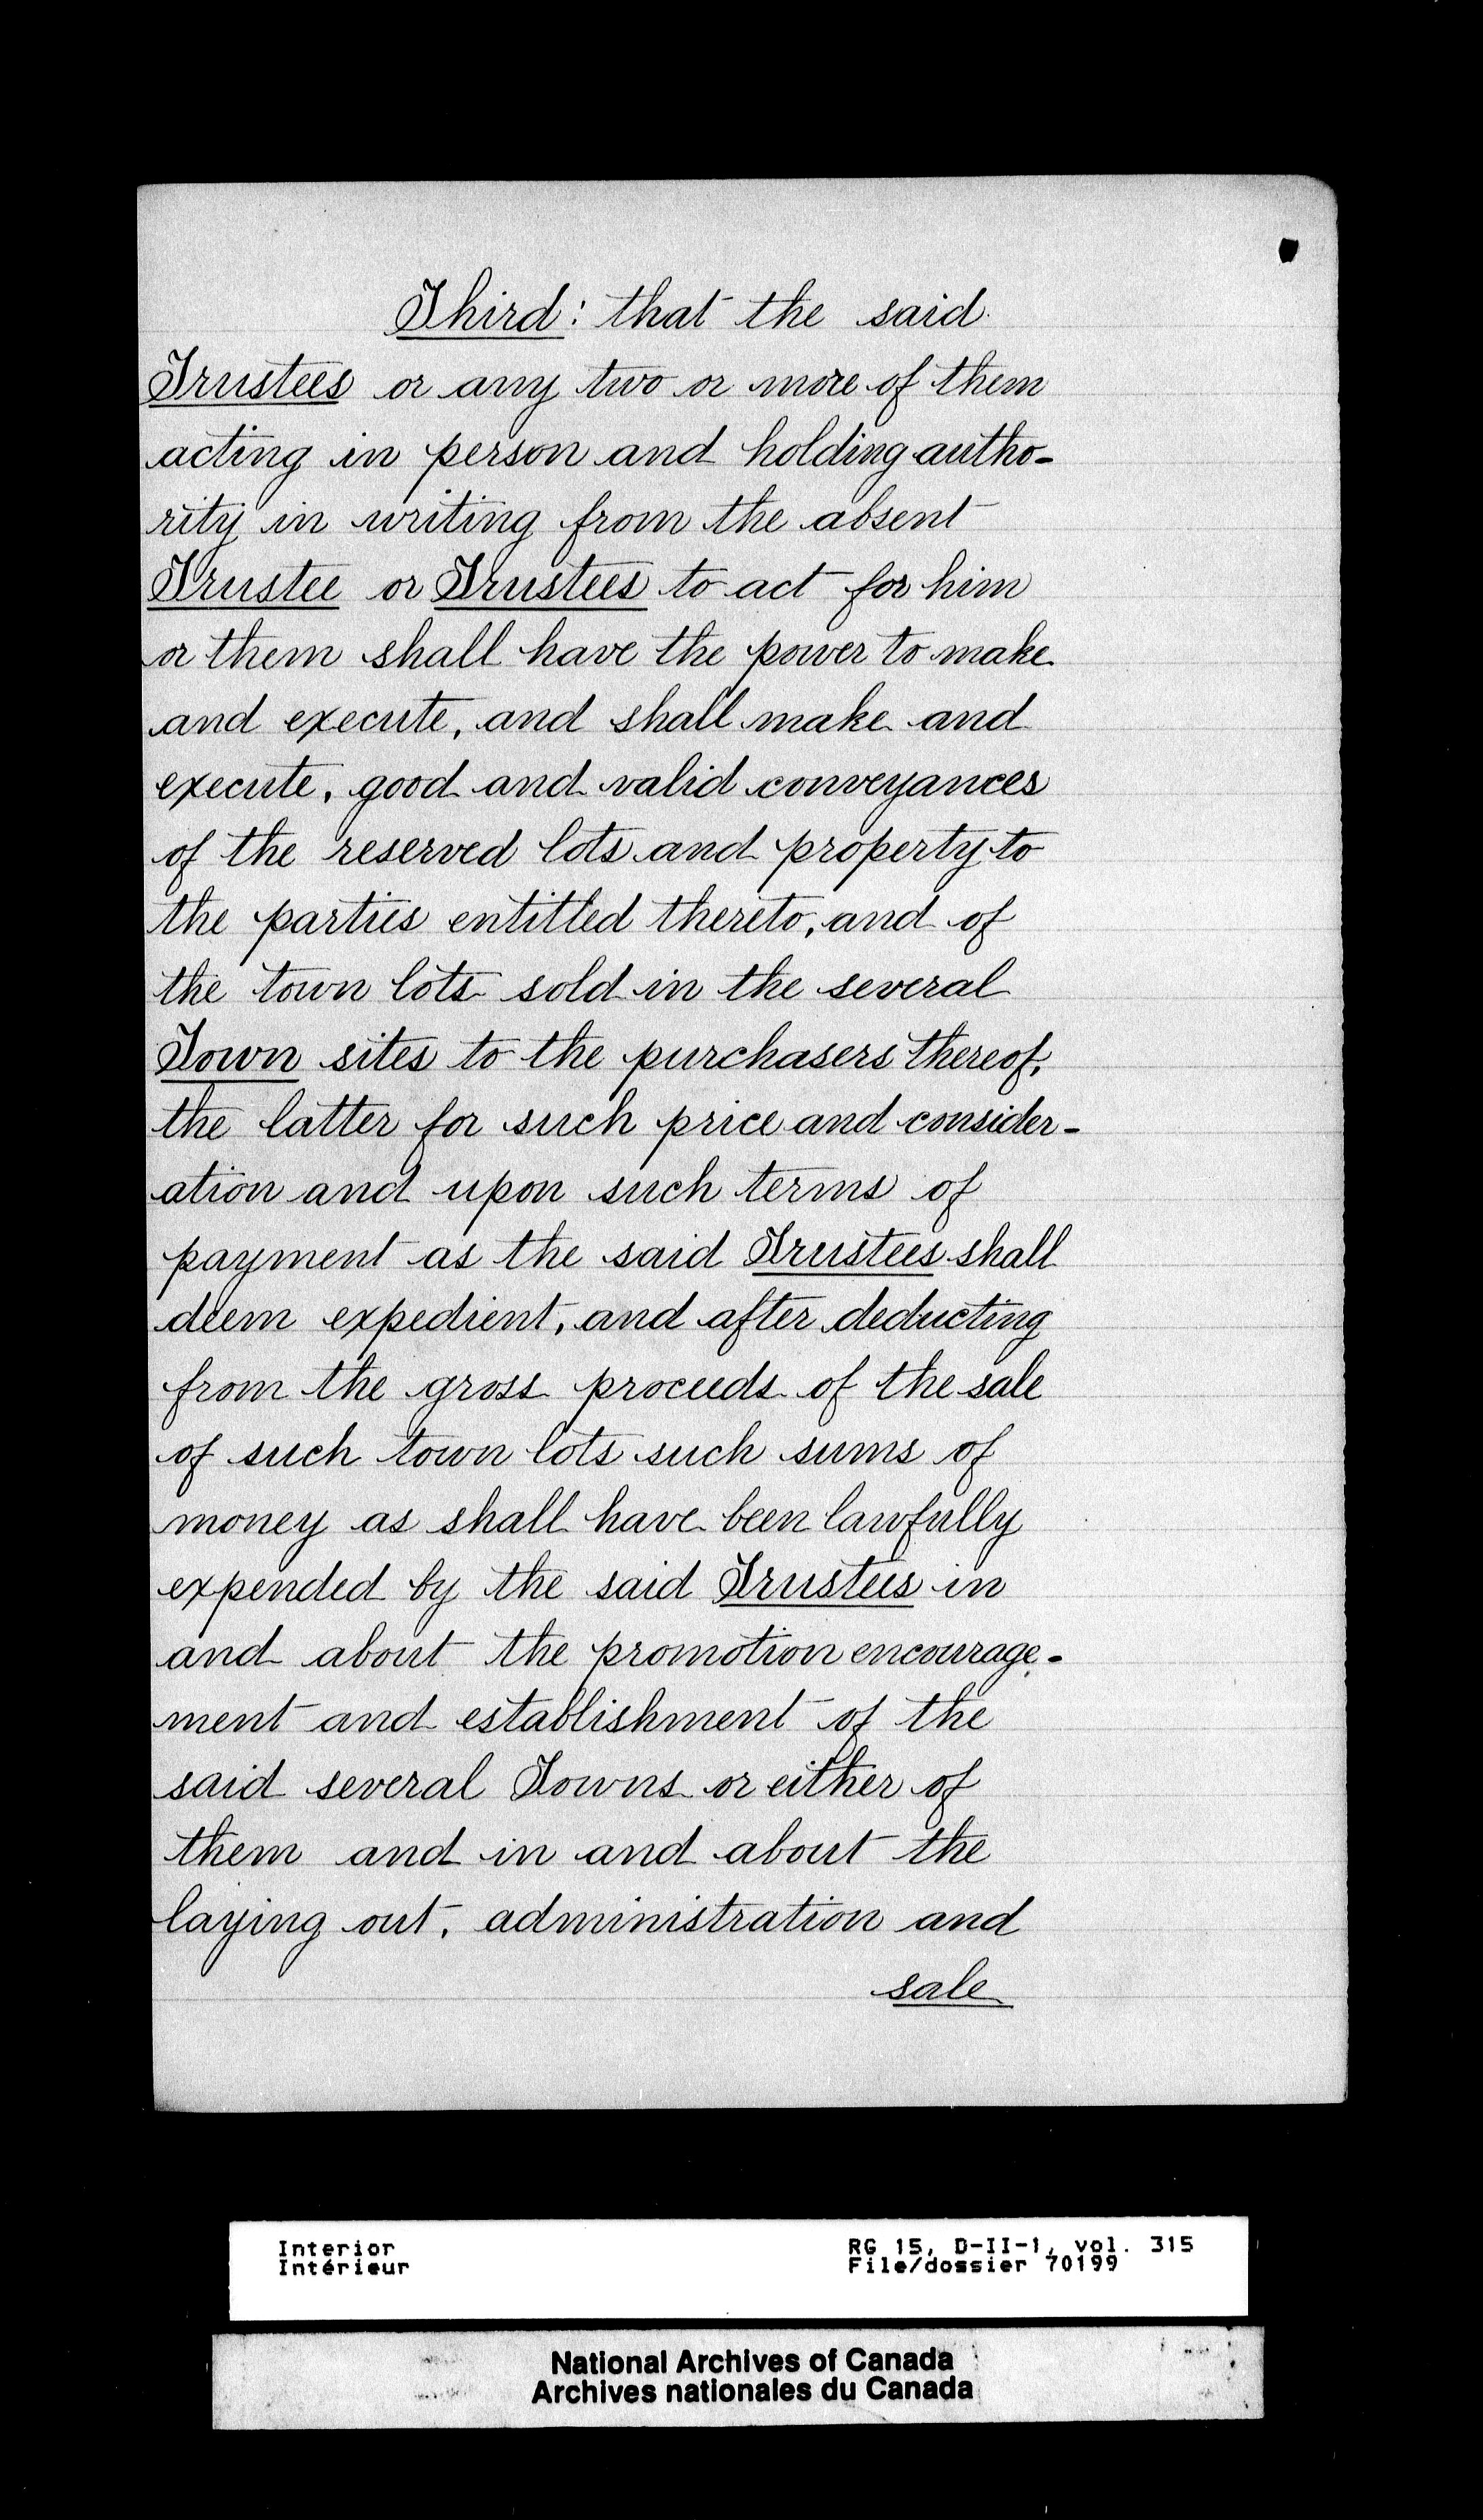 Third: that the said
Trustees or any two or more of them
acting in person and holding autho-
rity in writing from the absent
Trustee or Trustees to act for him
or them shall have the power to make
and execute, and shall make and
execute, good and valid conveyances
of the reserved lots and property to
the parties entitled thereto, and of
the town lots sold in the several
Town sites to the purchasers thereof,
the latter for such price and consider-
ation and upon such terms of
payment as the said Trustees shall
deem expedient, and after deducting
from the gross proceeds of the sale
of such town lots such sums of
money as shall have been lawfully
expended by the said Trustees in
and about the promotion encourage-
ment and establishment of the
said several Towns or either of
them and in and about the
laying out, administration and
sale
Interior
Intérieur
RG 15, D-II-1, vol. 315
File/dossier 70199
National Archives of Canada
Archives nationales du Canada